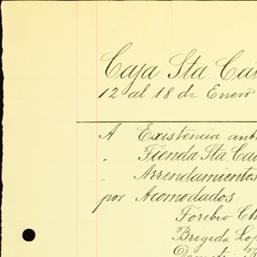 Caja Sta Ca
12 al 18 de Enero
A Existencia ant
" Tienda Sta Ca
" Arrendamientos
por Acomodados
Toribio Ch
Brigida Lop